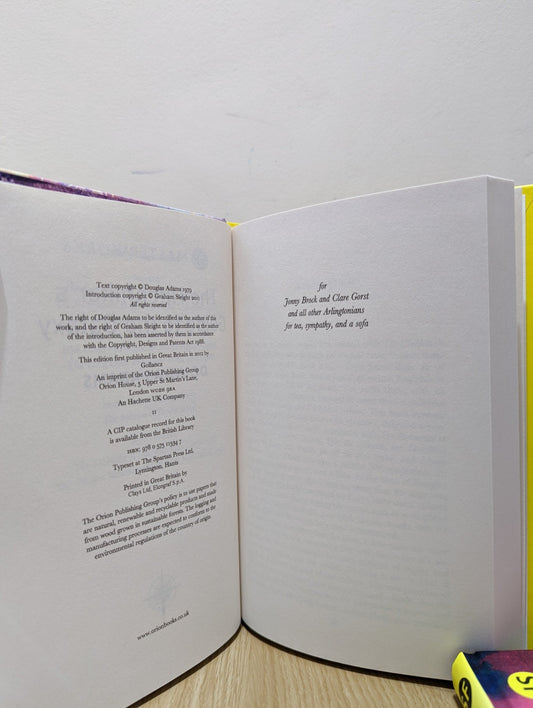 Text copyright © Douglas Adams 1979
Introduction copyright © Graham Sleight 2013
All rights reserved
The right of Douglas Adams to be identified as the author of this
work, and the right of Graham Sleight to be identified as the author
of the introduction, has been asserted by them in accordance
with the Copyright, Designs and Patents Act 1988.
This edition first published in Great Britain in 2012 by
Gollancz
An imprint of the Orion Publishing Group
Orion House, 5 Upper St Martin's Lane,
London WC2H 9EA
An Hachette UK Company
11
A CIP catalogue record for this book
is available from the British Library
ISBN: 978 0 575 11534 7
Typeset at The Spartan Press Ltd,
Lymington, Hants
Printed in Great Britain by
Clays Ltd, Elcograf S.p.A.
The Orion Publishing Group's policy is to use papers that
are natural, renewable and recyclable products and made
from wood grown in sustainable forests. The logging and
manufacturing processes are expected to conform to the
environmental regulations of the country of origin.
www.orionbooks.co.uk
for
Jonny Brock and Clare Gorst
and all other Arlingtonians
for tea, sympathy, and a sofa
SF